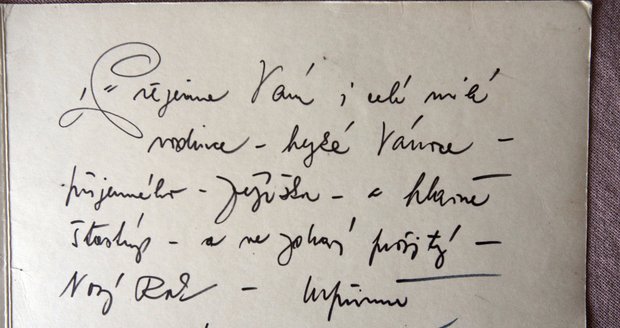 Přejeme Vám i celé milé
rodince – hezké Vánoce –
příjemného – Ježíška – a hlavně
šťastný – a ne zcela prožitý –
Nový Rok –